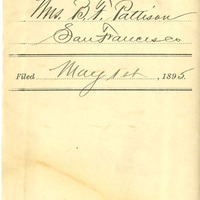 Mrs. B. F. Pattison
San Francisco
Filed May 1st, 1895.